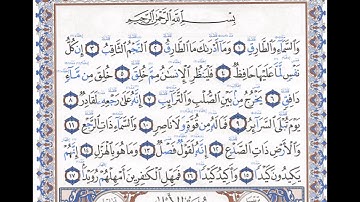 بِسْمِ اللَّهِ الرَّحْمَٰنِ الرَّحِيمِ
وَالسَّمَاءِ وَالطَّارِقِ ١ وَمَا أَدْرَاكَ مَا الطَّارِقُ ٢ النَّجْمُ الثَّاقِبُ ٣ إِنْ كُلُّ
نَفْسٍ لَمَّا عَلَيْهَا حَافِظٌ ٤ فَلْيَنْظُرِ الْإِنْسَانُ مِمَّ خُلِقَ ٥ خُلِقَ مِنْ مَاءٍ
دَافِقٍ ٦ يَخْرُجُ مِنْ بَيْنِ الصُّلْبِ وَالتَّرَائِبِ ٧ إِنَّهُ عَلَىٰ رَجْعِهِ لَقَادِرٌ ٨
يَوْمَ تُبْلَى السَّرَائِرُ ٩ فَمَا لَهُ مِنْ قُوَّةٍ وَلَا نَاصِرٍ ١٠ وَالسَّمَاءِ ذَاتِ الرَّجْعِ ١١
وَالْأَرْضِ ذَاتِ الصَّدْعِ ١٢ إِنَّهُ لَقَوْلٌ فَصْلٌ ١٣ وَمَا هُوَ بِالْهَزْلِ ١٤ إِنَّهُمْ
يَكِيدُونَ كَيْدًا ١٥ وَأَكِيدُ كَيْدًا ١٦ فَمَهِّلِ الْكَافِرِينَ أَمْهِلْهُمْ رُوَيْدًا ١٧